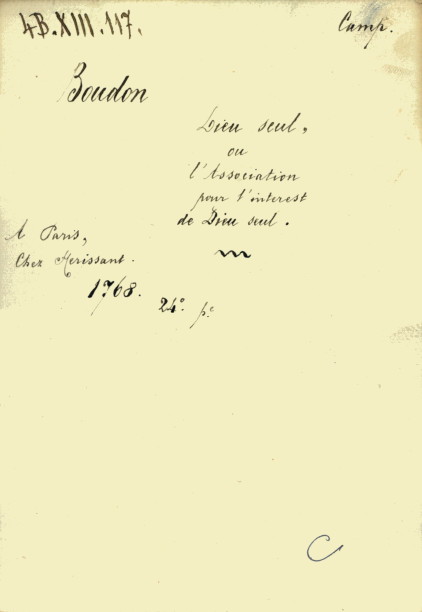 4B.XIII.117.
Camp.
Boudon
Dieu seul,
ou
l'Association
pour l'interest
de Dieu seul.
A Paris,
Chez Herissant.
1768.
24º. pº
C